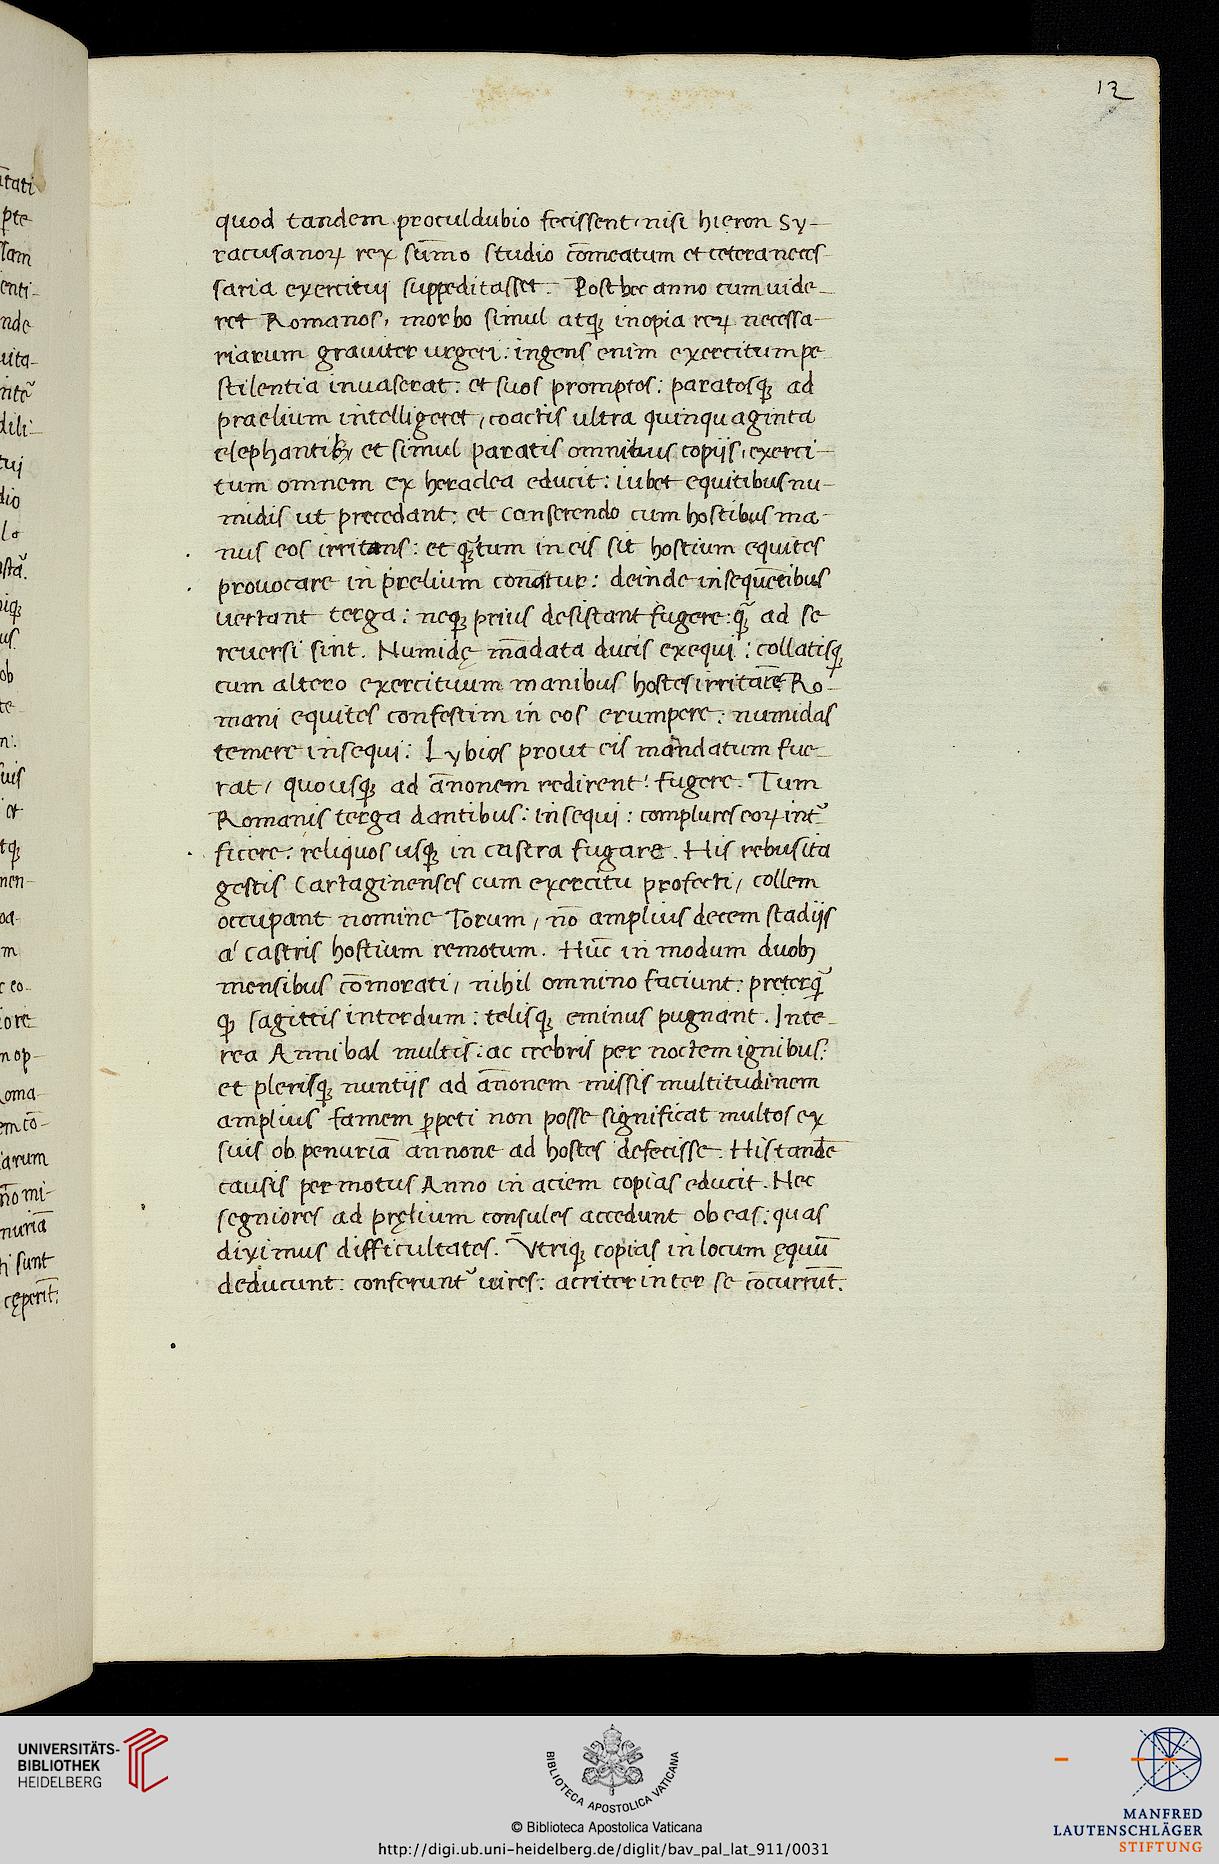 12
quod tandem proculdubio fecissent, nisi hieron Sy-
racusanoꝝ rex sum̄o studio com̄eatum et cetera neces-
saria exercitui suppeditasset. Post hec anno cum uide-
ret Romanos, morbo simul atqꝫ inopia reꝝ necessa-
riarum grauiter urgeri: ingens enim exercitum pe-
stilentia inuaserat: et suos promptos: paratosqꝫ ad
praelium intelligeret, coactis ultra quinquaginta
elephantibꝫ, et simul paratis omnibus copijs, exerci-
tum omnem ex heraclea educit: iubet equitibus nu-
midis ut precedant: et conserendo cum hostibus ma-
nus eos irritans: et qꝫ̃tum in eis sit hostium equites
prouocare in prelium conātur: deinde insequētibus
uertant terga: neqꝫ prius desistant fugere: qꝫ̃ ad se
reuersi sint. Numidę mādata ducis exequi: collatisqꝫ
cum altero exercituum manibus hostes irritare Ro-
mani equites confestim in eos erumpere: numidas
temere insequi: Lybies prout eis mandatum fue-
rat, quousqꝫ ad an̄onem redirent: fugere. Tum
Romanis terga dantibus: insequi: complures eoꝝ int᷑
ficere: reliquos usqꝫ in castra fugare. His rebus ita
gestis Cartaginenses cum exercitu profecti, collem
occupant nomine Torum, nō amplius decem stadijs
a' castris hostium remotum. Hūc in modum duobꝫ
mensibus com̄orati, nihil omnino faciunt: preterqꝫ̃
qꝫ sagittis interdum: telisqꝫ eminus pugnant. Inte-
rea Annibal multis: ac crebris per noctem ignibus:
et plerisqꝫ nuntijs ad an̄onem missis multitudinem
amplius famem ꝑpeti non posse significat multos ex
suis ob penuriā annone ad hostes defecisse. His tandē
causis permotus Anno in aciem copias educit. Nec
segniores ad pręlium consules accedunt ob eas: quas
diximus difficultates. Vtriqꝫ copias in locum ęquū
deducunt: conferunt᷑ uires: acriter inter se cōcurrūt.
UNIVERSITÄTS-
BIBLIOTHEK
HEIDELBERG
BIBLIOTECA APOSTOLICA VATICANA
© Biblioteca Apostolica Vaticana
http://digi.ub.uni-heidelberg.de/diglit/bav_pal_lat_911/0031
MANFRED
LAUTENSCHLÄGER
STIFTUNG